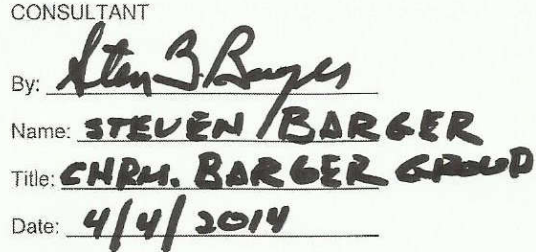 CONSULTANT
By: Steven B Barger
Name: STEVEN BARGER
Title: CHRM. BARGER GROUP
Date: 4/4/2014